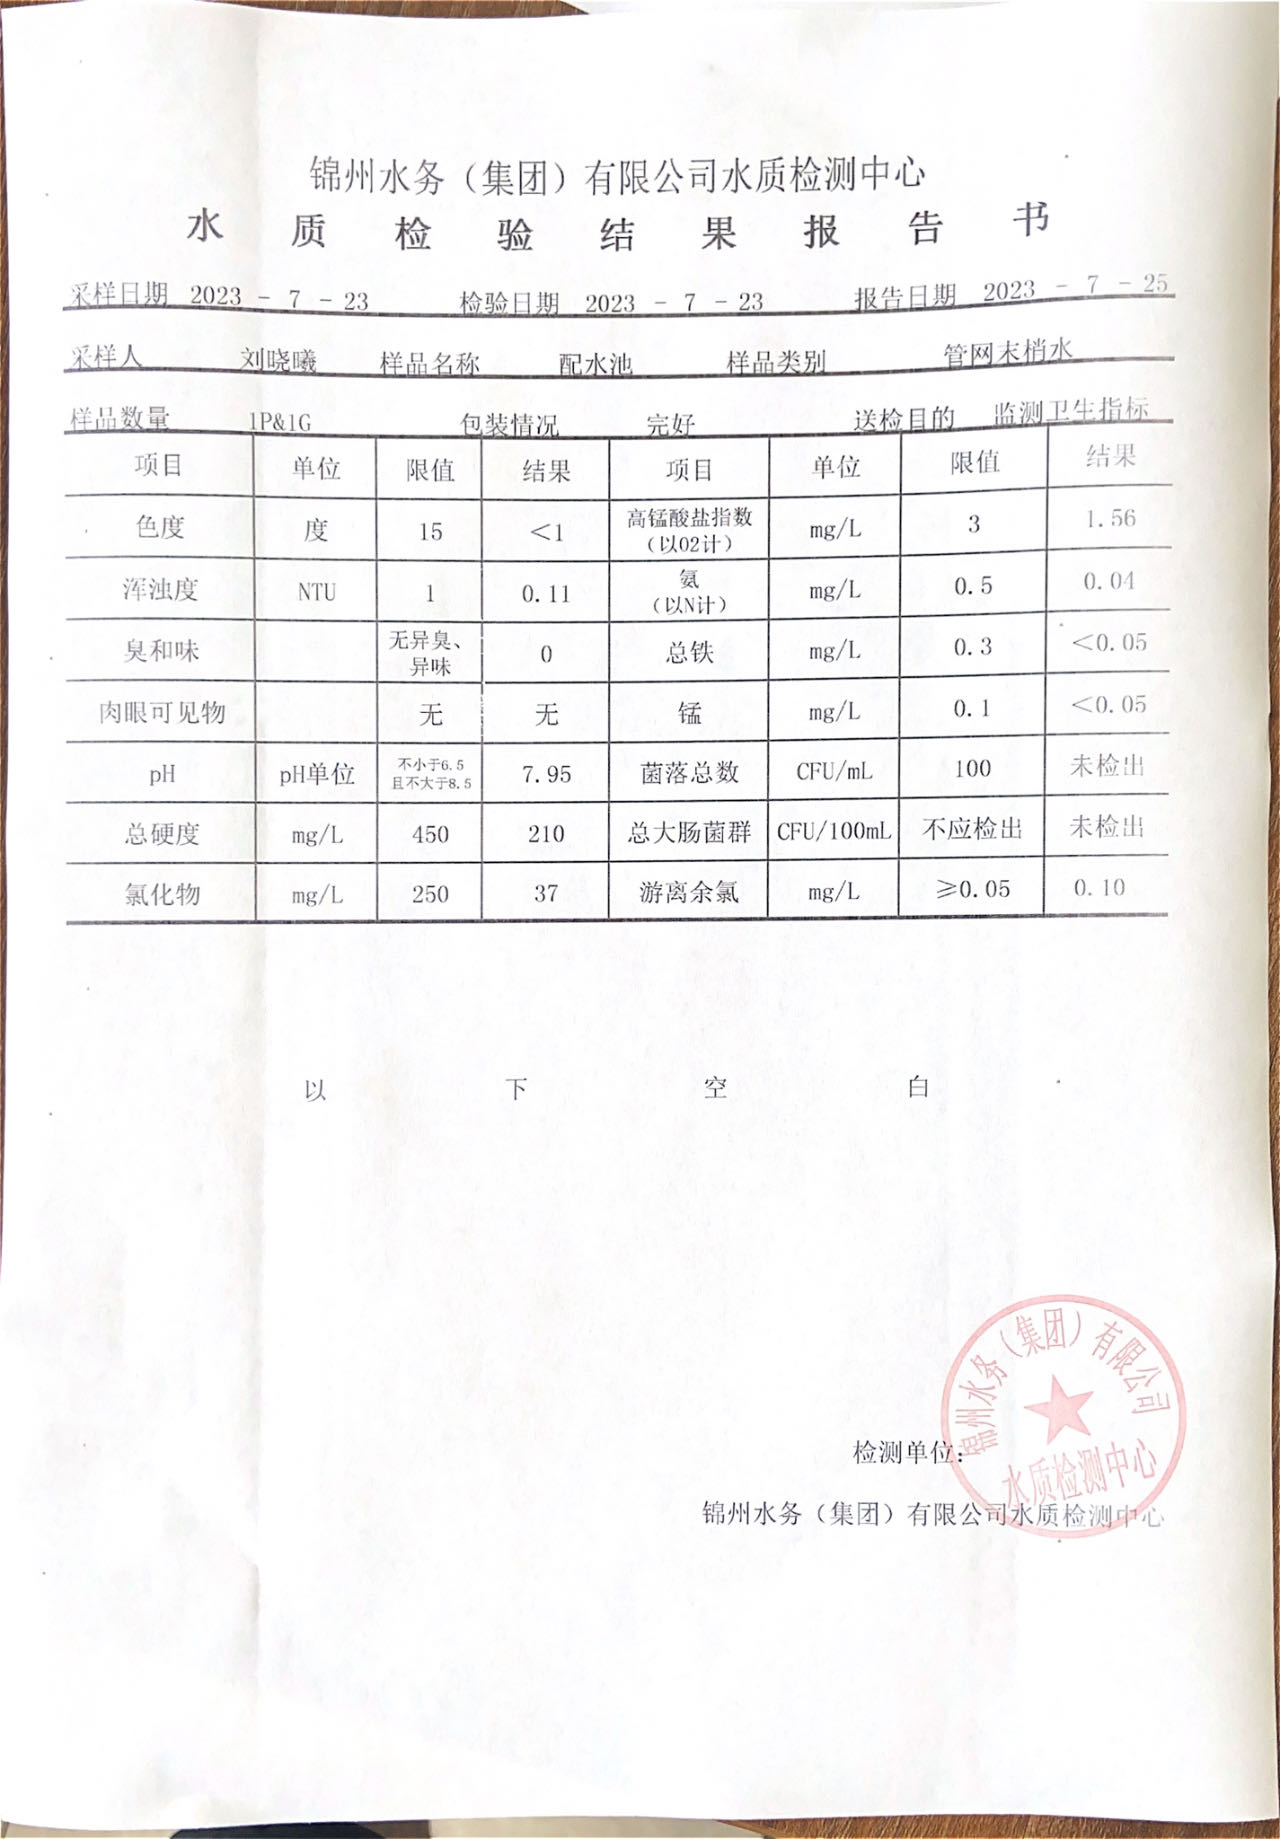 锦州水务（集团）有限公司水质检测中心
水质检验结果报告书
采样日期 2023 - 7 - 23 检验日期 2023 - 7 - 23 报告日期 2023 - 7 - 25
采样人 刘晓曦 样品名称 配水池 样品类别 管网末梢水
样品数量 1P&1G 包装情况 完好 送检目的 监测卫生指标
项目 单位 限值 结果 项目 单位 限值 结果
色度 度 15 <1 高锰酸盐指数（以O2计） mg/L 3 1.56
浑浊度 NTU 1 0.11 氨（以N计） mg/L 0.5 0.04
臭和味 无异臭、异味 0 总铁 mg/L 0.3 <0.05
肉眼可见物 无 无 锰 mg/L 0.1 <0.05
pH pH单位 不小于6.5且不大于8.5 7.95 菌落总数 CFU/mL 100 未检出
总硬度 mg/L 450 210 总大肠菌群 CFU/100mL 不应检出 未检出
氯化物 mg/L 250 37 游离余氯 mg/L ≥0.05 0.10
以下空白
锦州水务（集团）有限公司
水质检测中心
检测单位：
锦州水务（集团）有限公司水质检测中心